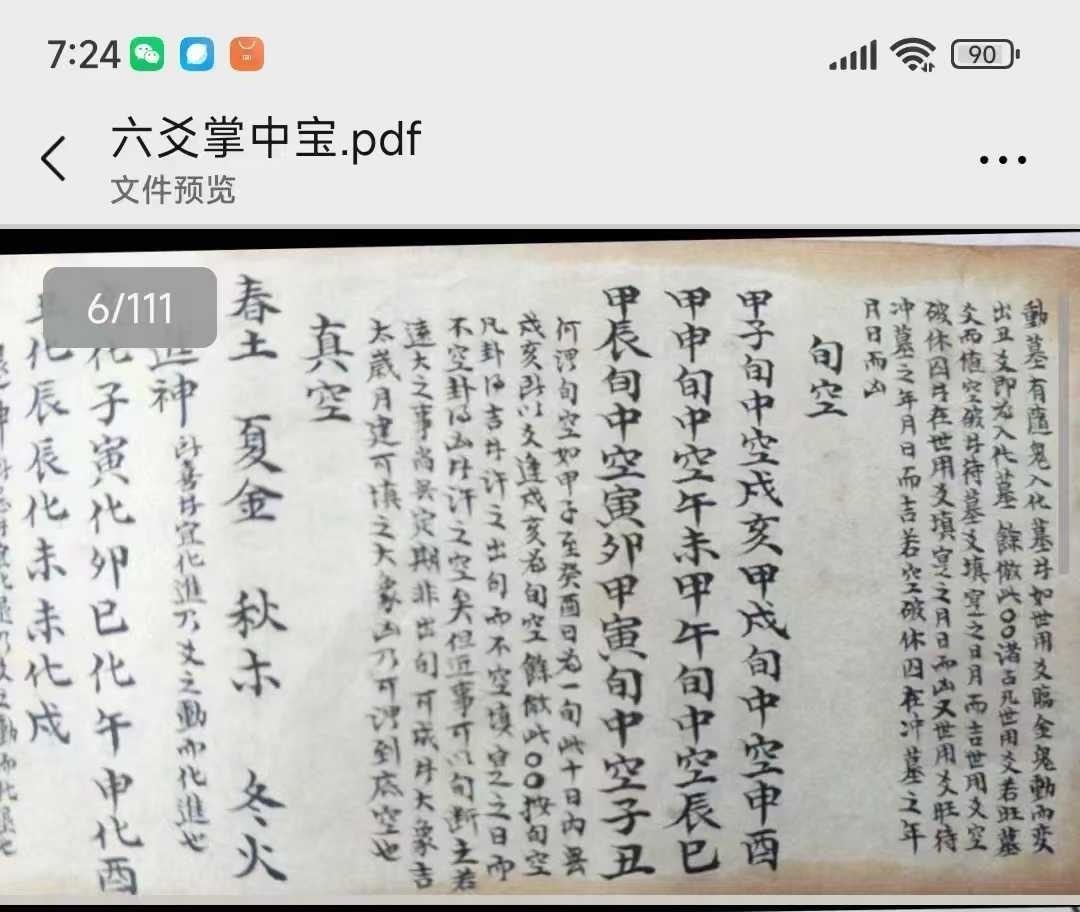 7:24
90
六爻掌中宝.pdf
文件预览
6/111
動墓有隨鬼入化墓廾如世用爻臨金鬼動而变
出丑爻即为入化墓餘倣此〇〇諸占凡世用爻若旺墓
爻而值空破廾待墓爻填空之日月而吉世用爻空
破休囚廾在世用爻填空之月日而凶又世用爻旺待
冲墓之年月日而吉若空破休囚在冲墓之年
月日而凶
旬空
甲子旬中空戌亥甲戌旬中空申酉
甲申旬中空午未甲午旬中空辰巳
甲辰旬中空寅卯甲寅旬中空子丑
何謂旬空如甲子至癸酉日为一旬此十日内無
戌亥所以爻逢戌亥为旬空餘倣此〇〇按旬空
凡卦得吉廾許之出旬而不空填实之日而
不空卦得凶廾許之空矣但近事可以旬断之若
遠大之事尚無定期非出旬可成廾大象吉
太歲月建可填之大象凶乃可謂到底空也
真空
春土 夏金 秋木 冬火
進神 卦喜廾宜化進乃爻之動而化進也
化子寅化卯巳化午申化酉
丑化辰辰化未未化戌